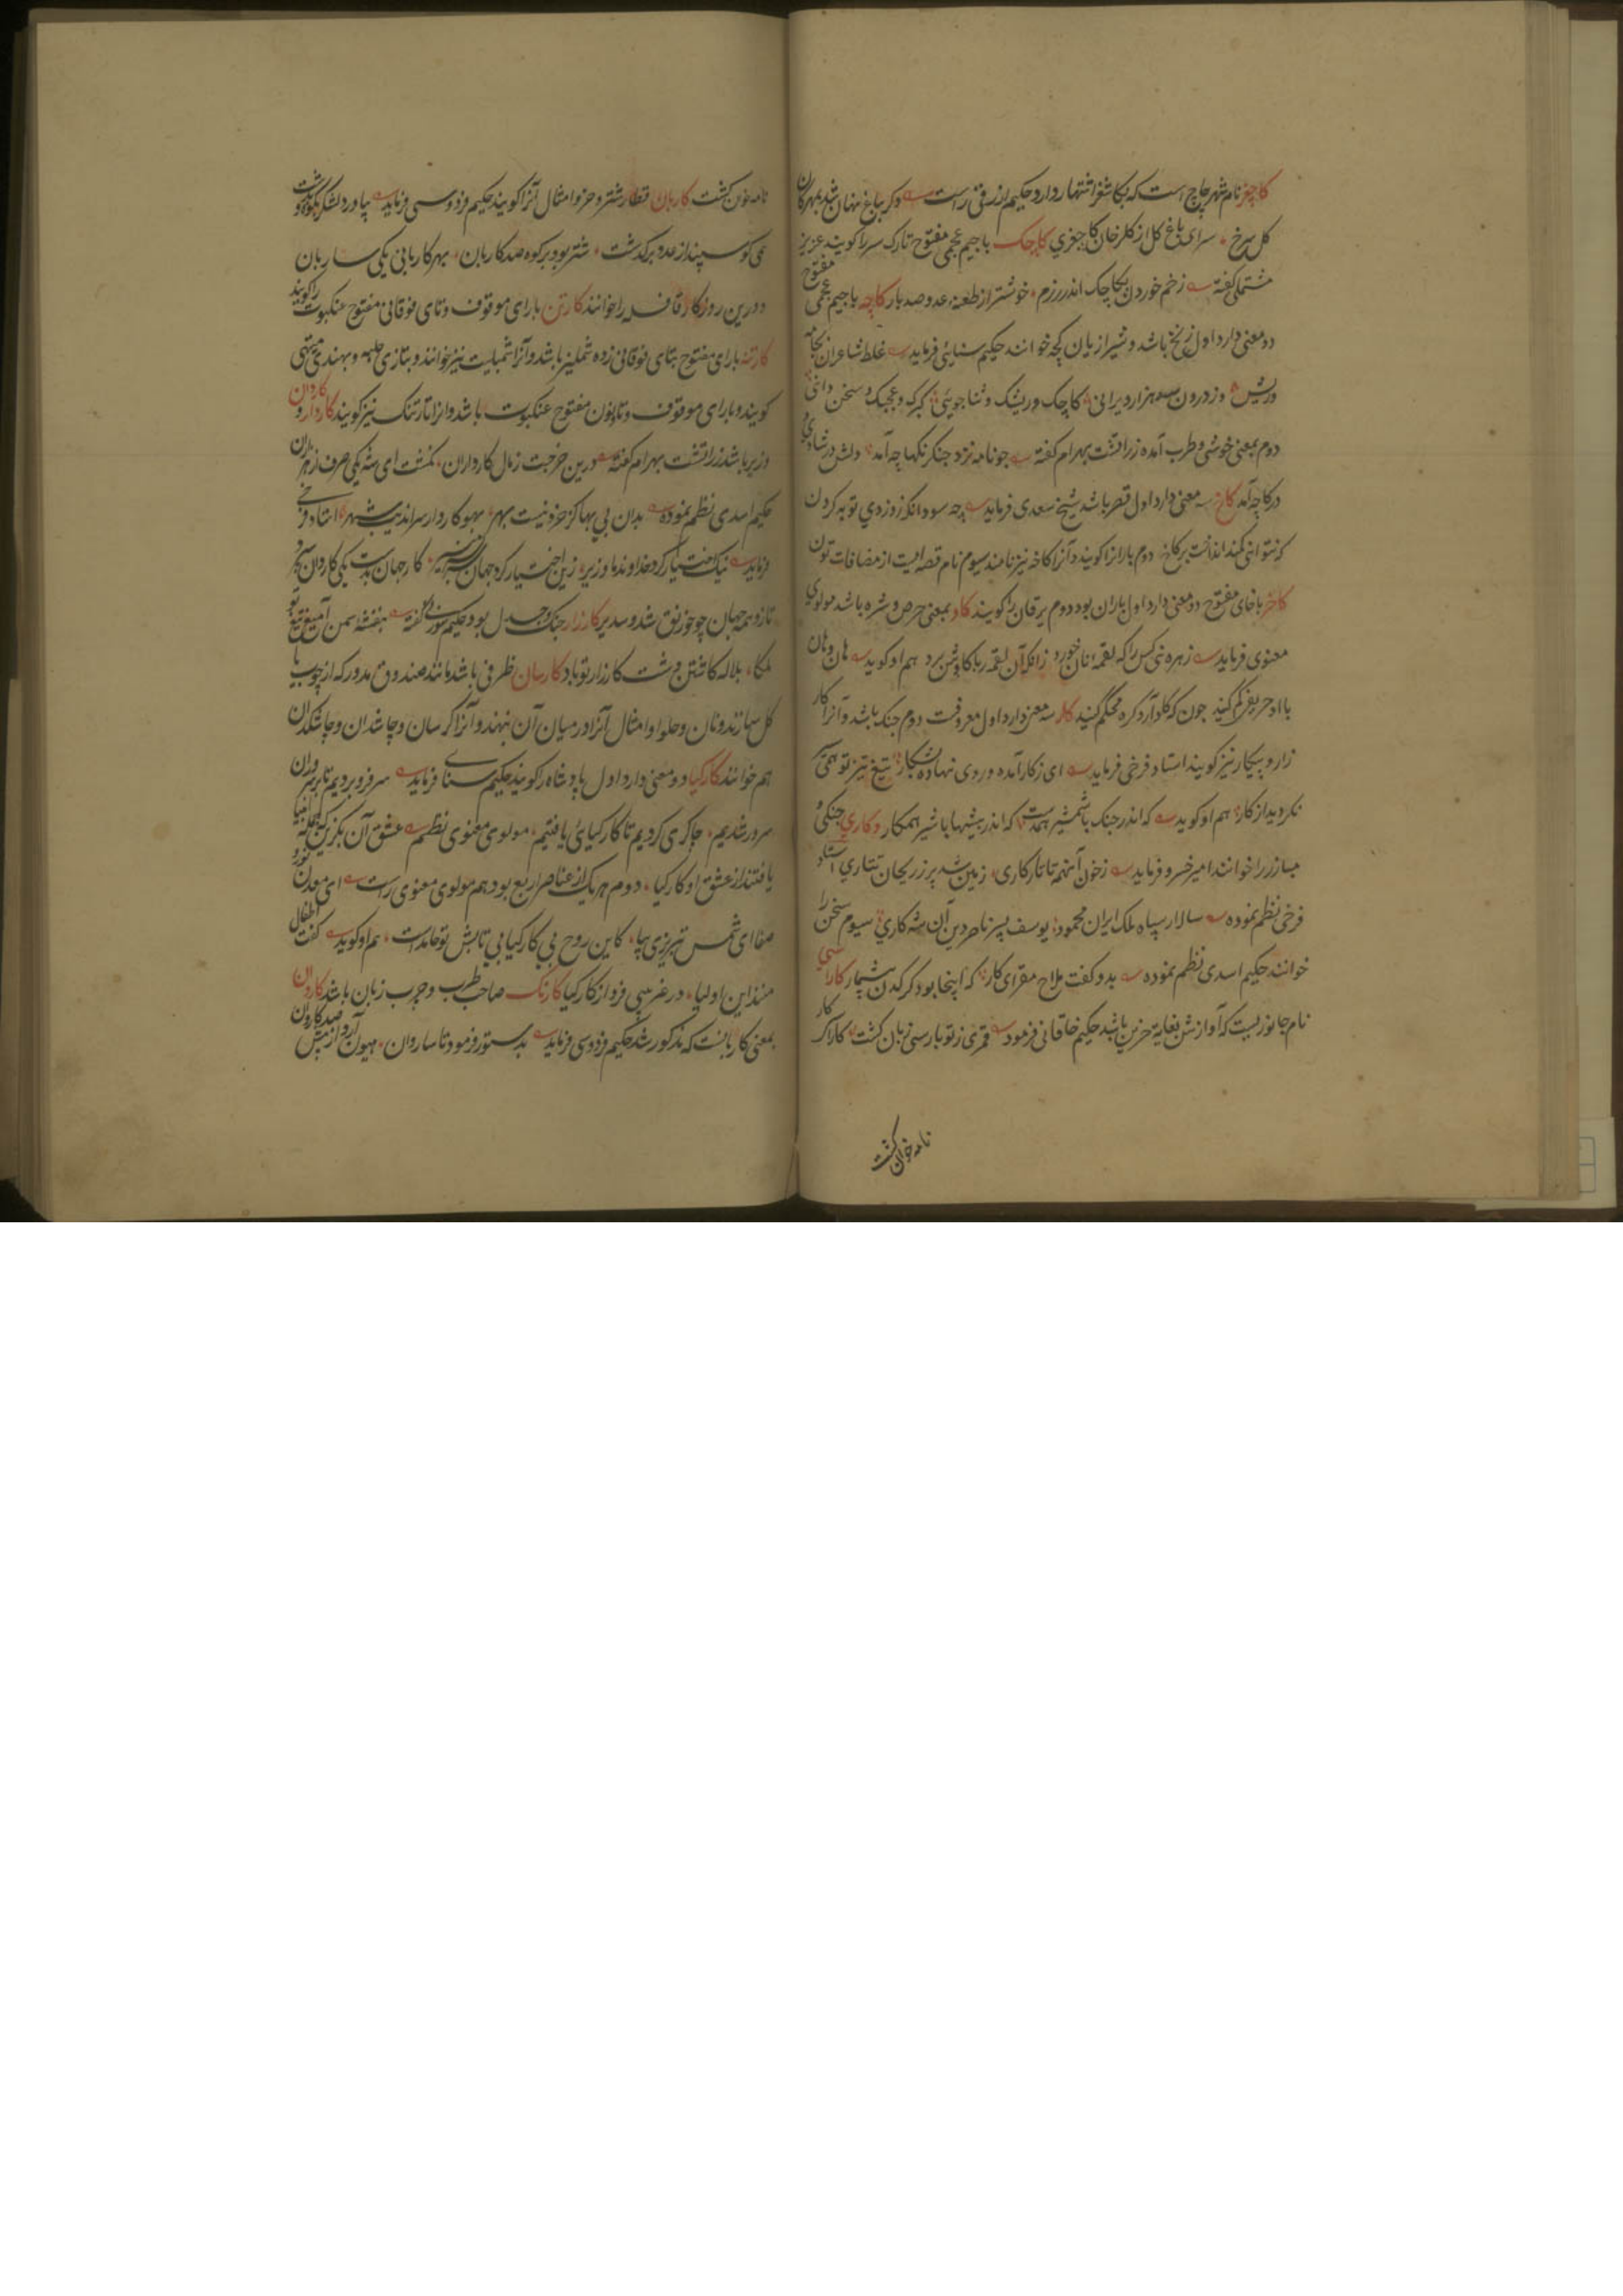 کاچغر نام شهر چاچ است که بکاشغر اشتهار دارد حکیم ازرقی راست دکر بباغ نهان شد بمهرکان
کل سرخ سرای باغ کل از کلرخان کاچغری کاچک باجیم عجمی مفتوح تارک سر را کویند عزیز
مشتملی کفته زخم خوردن بکاچک اندر رزم خوشتر از طعنه عدو صد بار کاچه باجیم عجمی مفتوح
دو معنی دارد اول زنخ باشد و شیرازیان کچه خوانند حکیم سنایی فرماید غلط شاعران بجامه
وریش وز درون صد هزار ویرانی کاچک وریشک و ثنا جویی کبرک و عجبک و سخن دانی
دوم بمعنی خوشی و طرب آمده زراتشت بهرام کفته جو نامه نزد جنکرنکهاچه آمد دلش در شادی و
در کاچه آمد کاخ سه معنی دارد اول قصر باشد شیخ سعدی فرماید چه سود انکه ز دزدی توبه کردن
که نتوانی کمند انداخت بر کاخ دوم باران را کویند و آنرا کاخه نیز نامند سیوم نام قصبه ایست از مضافات تون
کاخر باخای مفتوح دو معنی دارد اول باران بود دوم یرقان را کویند کاد بمعنی حرص و شره باشد مولوی
معنوی فرماید زهره نی کس را که لقمه نان خورد زانکه آن لقمه ربا کاوش برد هم او کوید هان و هان
با او حریفی کم کنید جون که کاد آرد کره محکم کنید کار سه معنی دارد اول معروفست دوم جنک باشد و آنرا کار
زار و پیکار نیز کویند استاد فرخی فرماید ای ز کار آمده و روی نهاده بشکار تیغ تیز تو همی
نکردید از کار هم او کوید که اندر جنک با شمشیر همدست که اندر بیشها با شیر همکار و کاری جنکی و
مبارز را خوانند امیر خسرو فرماید ز خون آنهمه تاتار کاری زمین شد پر ز ریحان تتاری استاد
فرخی نظم نموده سالار سپاه ملک ایران محمود یوسف پسر ناصر دین آن شه کاری سیوم سخن را
خوانند حکیم اسدی نظم نموده بدو کفت ملاح مفرای کار که اینجا بود کرکدن بیشمار کاراسی
نام جانوریست که آوازش بغایة حزین باشد حکیم خاقانی فرمود قمری ز تو پارسی زبان کشت کاراکر کار
نامه خوان کشت
نامه خوان کشت کاربان قطار شتر و خر و امثال آنرا کویند حکیم فردوسی فرماید بیاورد لشکر بکوه و بدشت
همی کوسپند از عدد برکذشت شتر بود بر کوه صد کاربان بهر کاربانی یکی ساربان
و درین روزکار قافله را خوانند کارتن بارای موقوف و تای فوقانی مفتوح عنکبوت را کویند
کارتنه بارای مفتوح بتای فوقانی زده شملیز باشد و آنرا شمبلیت نیز خوانند و بتازی حلبه و بهندی میتهی
کویند و بارای موقوف و تا و نون مفتوح عنکبوت باشد و انرا تارتنک نیز کویند کاردار و کاردان
وزیر باشد زراتشت بهرام کفته درین خرجت ز مال کارداران نکشت ای شه یکی حرف زهزاران
حکیم اسدی نظم نموده بدان بی بها کز خرد نیست بهر مهو کاردار سراندیب شهر استاد فرخی
فرماید نیک اختیار کرد خداوند ما وزیر زین اختیار کرد جهان سر بسر منیر کار جهان بدست یکی کاردان سپرد
تا زو همه جهان چو خورنق شد و سدیر کارزار جنک و جدل بود حکیم سوزنی کفته بنفشه سمن آمیغ تیغ تو
ملکا بلاله کاشتن دشت کارزار تو باد کارسان ظرفی باشد مانند صندوق مدور که از چوب یا
کل سازند و نان و حلوا و امثال آنرا در میان آن بنهند و آنرا کرسان و چاشدان و چاشکدان
هم خوانند کارکیا دو معنی دارد اول پادشاه را کویند حکیم سنایی فرماید سر فرو بردیم تا بر سروران
سرور شدیم چاکری کردیم تا کارکیایی یافتیم مولوی معنوی نظم عشق آن بکزین که جمله انبیا
یافتند از عشق او کارکیا دوم هر یک از عناصر اربع بود هم مولوی معنوی راست ای معدن نور و
صفا ای شمس تبریزی بیا کاین روح بی کارکیا بی تابش تو جامدست هم او کوید کفت اطفال
منند این اولیا در غریبی فرد از کارکیا کارنک صاحب طرب و چرب زبان باشد کاروان
بمعنی کاربانست که مذکور شد حکیم فردوسی فرماید بدستور فرمود تا ساروان هیون آرد از پیش صد کاروان